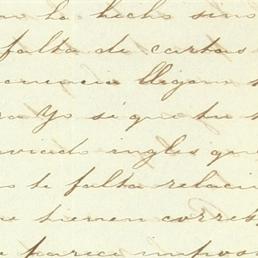 han hecho sino
falta de cartas
rencia lligan
ra Yo si que tu
viado ingles que
te falta relaci
ue tienen corres
parece impos